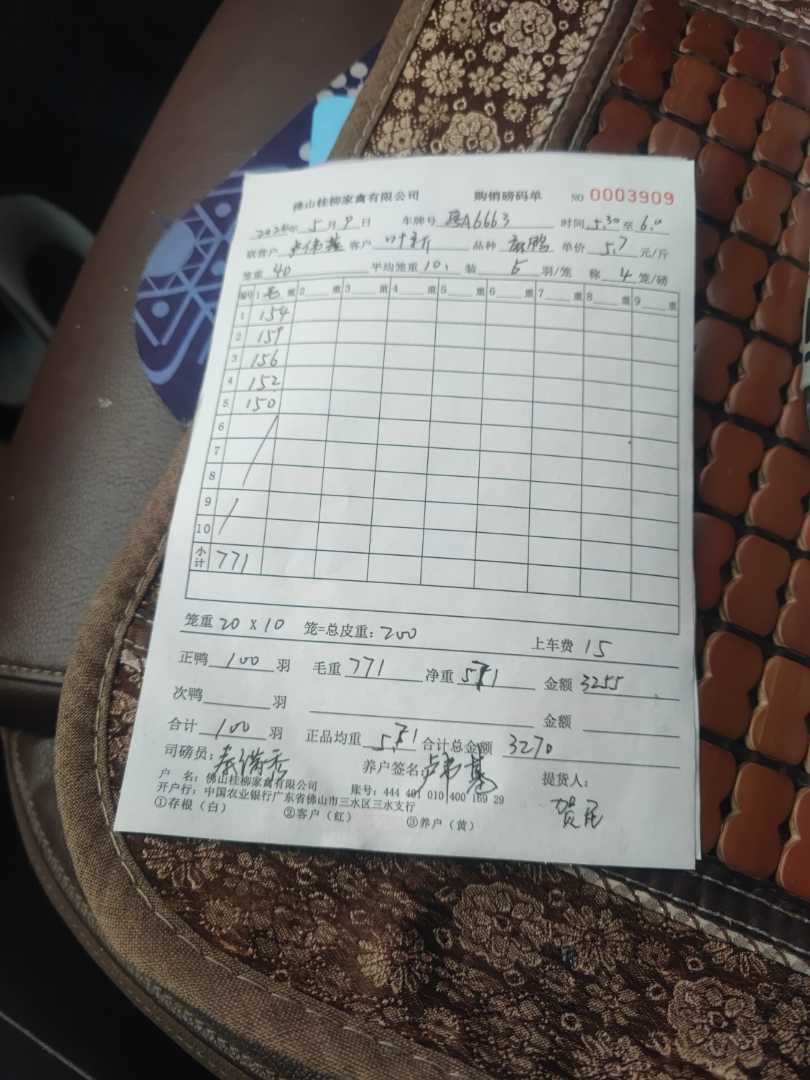 佛山桂柳家禽有限公司 购销磅码单 NO 0003909
年 5 月 9 日 车牌号 A6663 时间 5.30 至 6.0
联营户 卢伟基 客户 叶新 品种 麻鸭 单价 5.7 元/斤
笼重 40 平均笼重 10. 装 5 羽/笼 称 4 笼/磅
编号 1 毛 重 2 重 3 重 4 重 5 重 6 重 7 重 8 重 9 重
1 154
2 159
3 156
4 152
5 150
6
7
8
9
10
小计 771
笼重 20 x 10 笼=总皮重: 200 上车费 15
正鸭 100 羽 毛重 771 净重 571 金额 3255
次鸭 羽 金额
合计 100 羽 正品均重 5.71 合计总金额 3270
司磅员: 养户签名: 卢伟基 提货人:
户 名: 佛山桂柳家禽有限公司 账号: 444 401 010 400 169 29
开户行: 中国农业银行广东省佛山市三水区三水支行
①存根(白) ②客户(红) ③养户(黄)